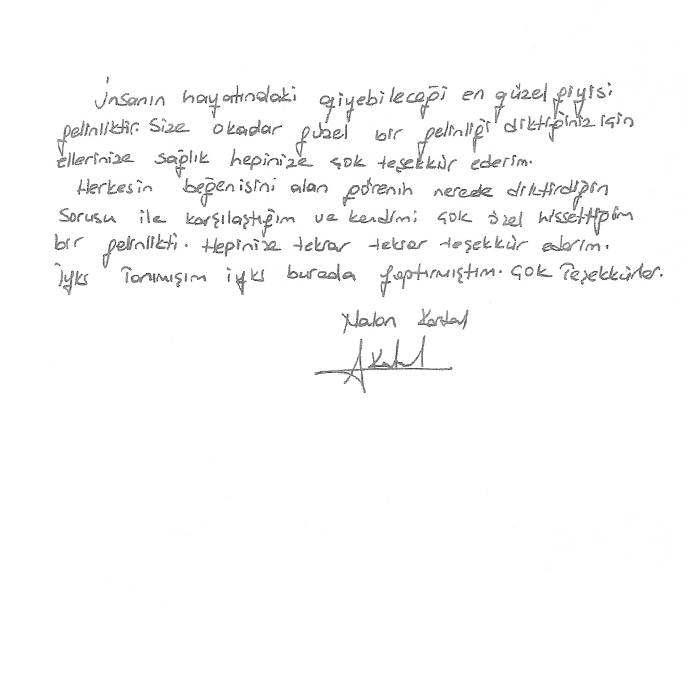 İnsanın hayatındaki giyebileceği en güzel giyisi
gelinliktir. Size okadar güzel bir gelinliği diktiğiniz için
ellerinize sağlık hepinize çok teşekkür ederim.
Herkesin beğenisini alan görenin nerede diktirdiğin
sorusu ile karşılaştığım ve kendimi çok özel hissettiğim
bir gelinlikti. Hepinize tekrar tekrar teşekkür ederim.
İyki tanımışım iyki burada yaptırmıştım. Çok Teşekkürler.